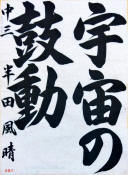 宇宙の
鼓動
中三 半田風晴